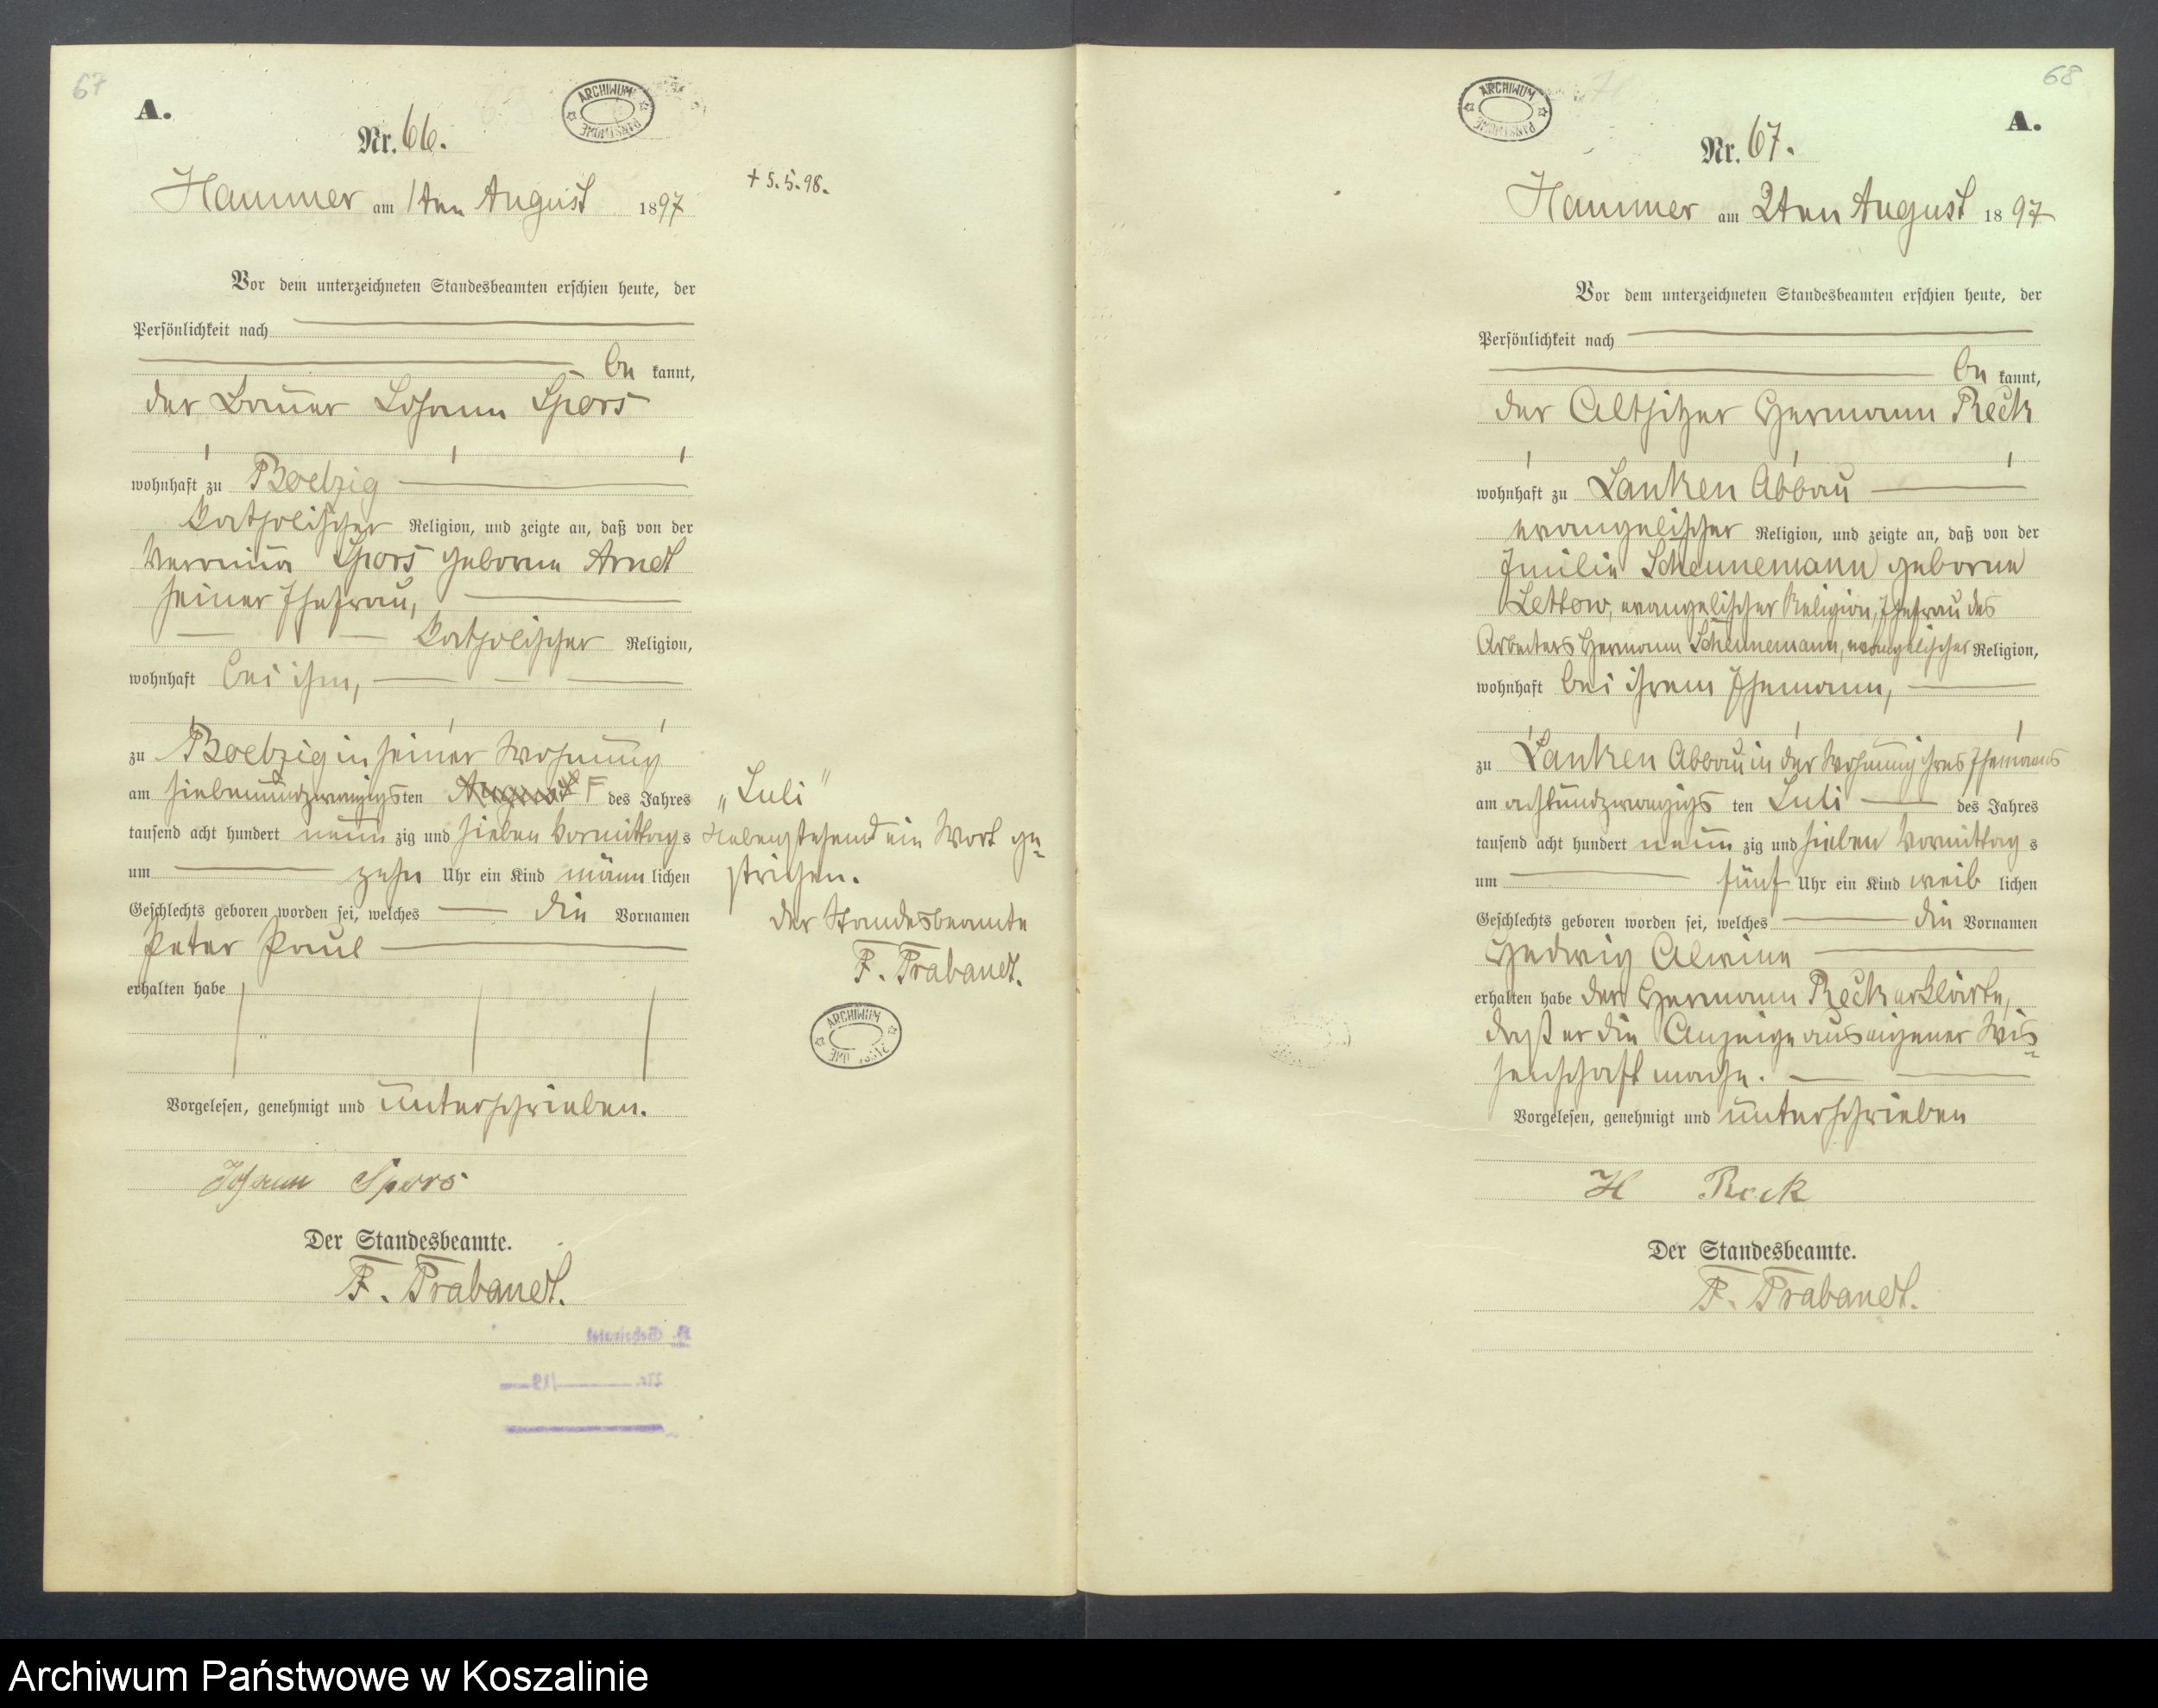 67
A.
ARCHIWUM PAŃSTWOWE
Nr. 66.
Hammer am 1ten August 1897
+ 5.5.98.
Vor dem unterzeichneten Standesbeamten erschien heute, der
Persönlichkeit nach
be kannt,
der Bauer Johann Spors
wohnhaft zu Boelzig
katholischer Religion, und zeigte an, daß von der
Spors geborne Arndt
seiner Ehefrau,
katholischer Religion,
wohnhaft bei ihm,
zu Boelzig in seiner Wohnung
am siebenundzwanzigsten August des Jahres
tausend acht hundert neun zig und sieben Vormittags
um zehn Uhr ein Kind männ lichen
Geschlechts geboren worden sei, welches die Vornamen
Peter Paul
erhalten habe
Vorgelesen, genehmigt und unterschrieben.
Johann Spors
Der Standesbeamte.
F. Trabandt.
„Juli"
Nebenstehend ein Wort ge-
strichen.
Der Standesbeamte
F. Trabandt.
ARCHIWUM
68
ARCHIWUM PAŃSTWOWE
A.
Nr. 67.
Hammer am 2ten August 1897
Vor dem unterzeichneten Standesbeamten erschien heute, der
Persönlichkeit nach
be kannt,
der Altsitzer Hermann Reck
wohnhaft zu Lanken Abbau
evangelischer Religion, und zeigte an, daß von der
Emilie Scheunemann geborne
Lettow, evangelischer Religion, Ehefrau des
Arbeiters Hermann Scheunemann, evangelischer Religion,
wohnhaft bei ihrem Ehemann,
zu Lanken Abbau in der Wohnung ihres Ehemanns
am achtundzwanzigs ten Juli des Jahres
tausend acht hundert neun zig und sieben Vormittag s
um fünf Uhr ein Kind weib lichen
Geschlechts geboren worden sei, welches die Vornamen
Hedwig Alwine
erhalten habe Der Hermann Reck erklärte,
daß er die Anzeige aus eigener Wis-
senschaft mache.
Vorgelesen, genehmigt und unterschrieben
H Reck
Der Standesbeamte.
F. Trabandt.
Archiwum Państwowe w Koszalinie